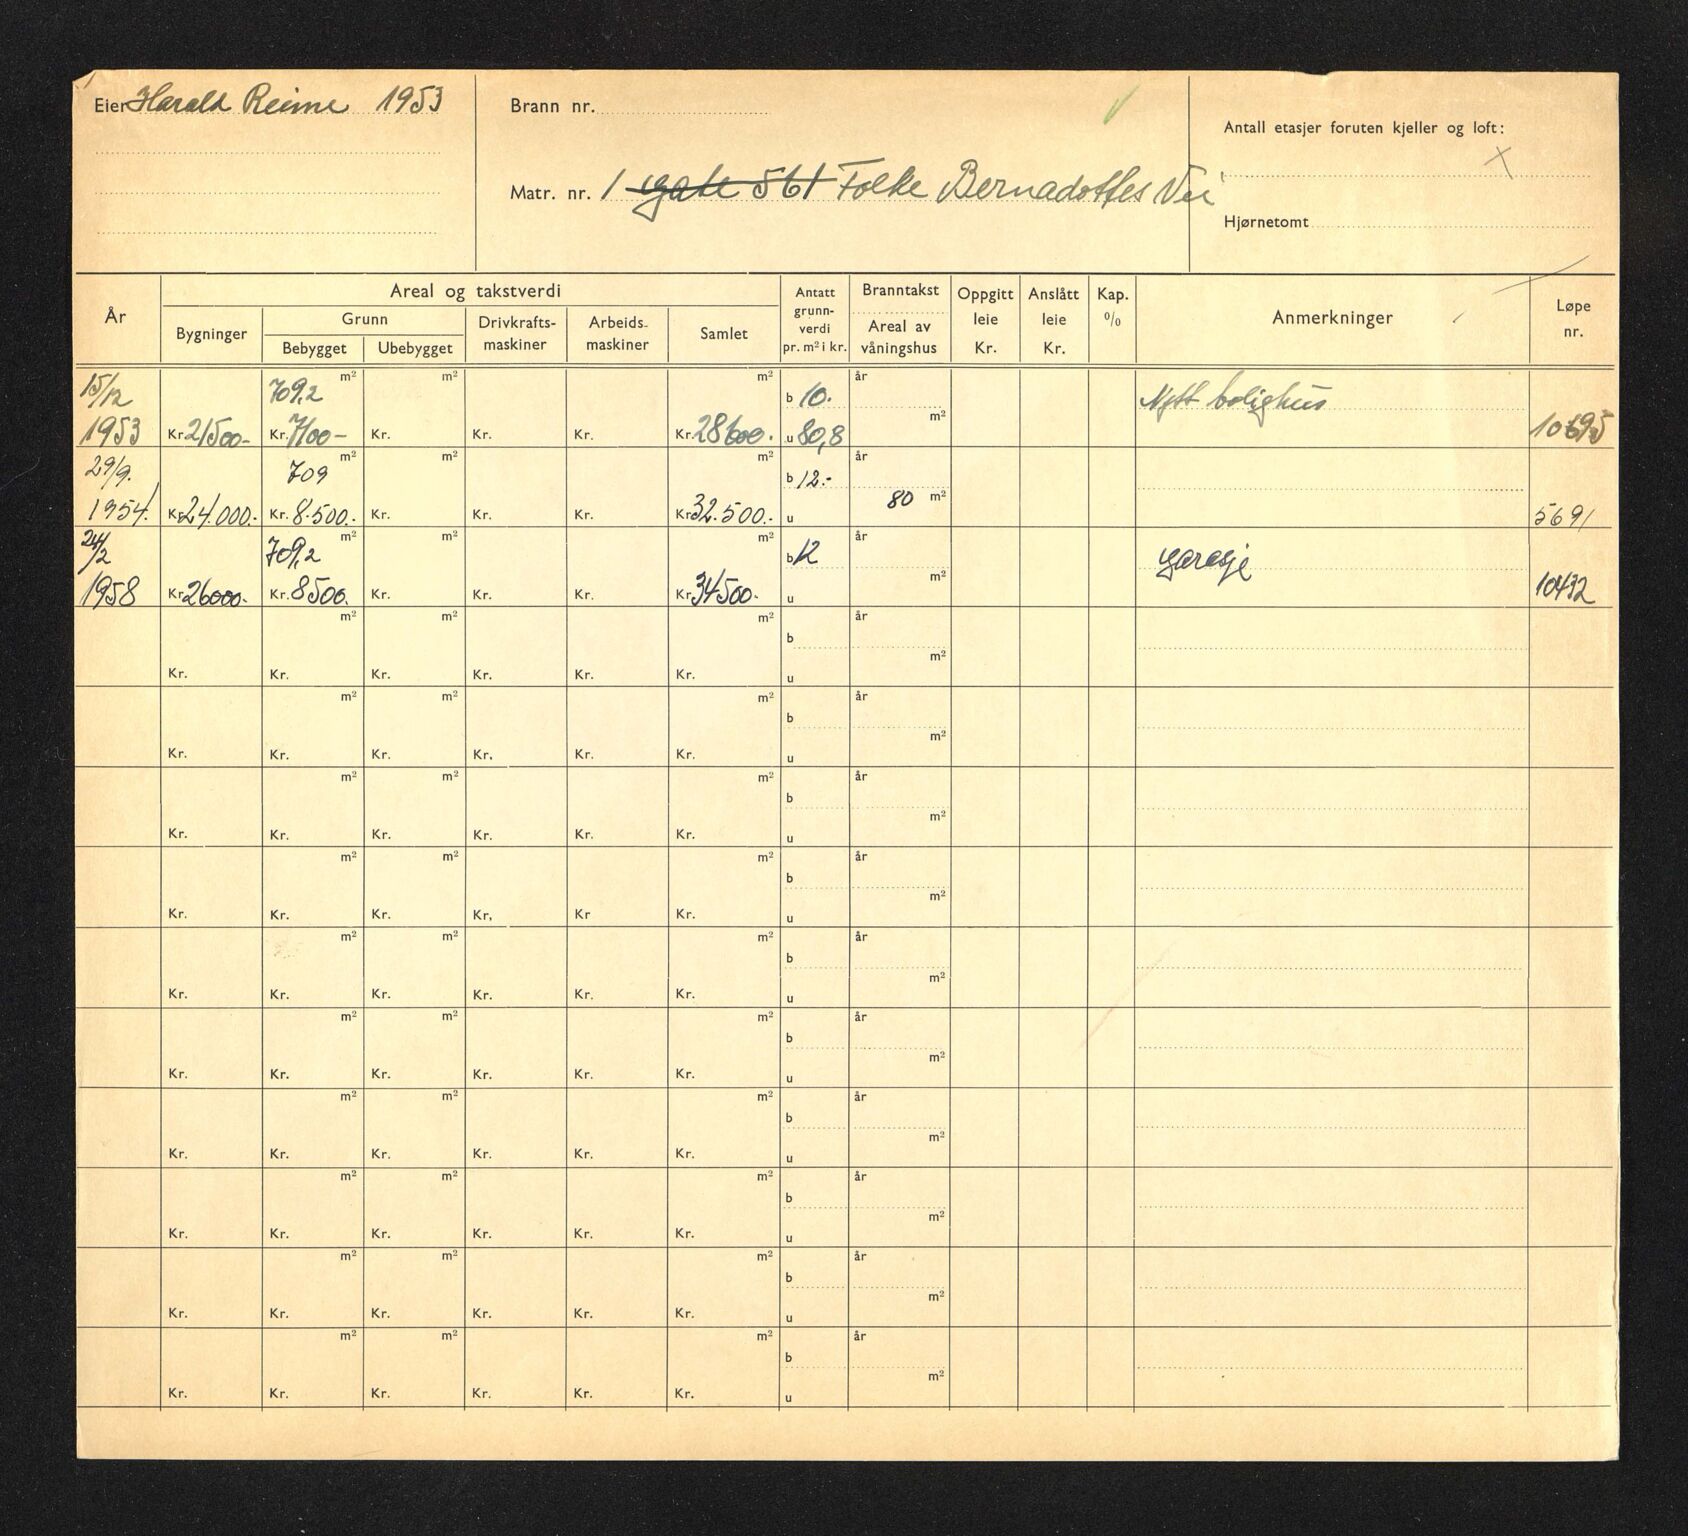 Eier Harald Reime 1953
Brann nr.
Matr. nr. 1 gate 561 Folke Bernadottes Vei
Antall etasjer foruten kjeller og loft:
Hjørnetomt
År
Areal og takstverdi
Bygninger
Grunn
Bebygget
Ubebygget
Drivkrafts-
maskiner
Arbeids-
maskiner
Samlet
Antatt
grunn-
verdi
pr. m² i kr.
Branntakst
Areal av
våningshus
Oppgitt
leie
Kr.
Anslått
leie
Kr.
Kap.
%
Anmerkninger
Løpe
nr.
15/12 709,2 m² m² m² b 10. år Nytt bolighus
1953 Kr. 21500- Kr. 7100- Kr. Kr. Kr. Kr. 28600. u 80,8 m²
29/9. 709 m² m² m² b 12.- år
1954. Kr. 24.000.- Kr. 8.500.- Kr. Kr. Kr. Kr. 32.500.- u 80 m² 5691
24/2 709,2 m² m² m² b 12 år garasje
1958 Kr. 26000.- Kr. 8500. Kr. Kr. Kr. Kr. 34500.- u m² 10432
m² m² m² b år
Kr. Kr. Kr. Kr. Kr. Kr. u m²
m² m² m² b år
Kr. Kr. Kr. Kr. Kr. Kr. u m²
m² m² m² b år
Kr. Kr. Kr. Kr. Kr. Kr. u m²
m² m² m² b år
Kr. Kr. Kr. Kr, Kr Kr. u m²
m² m² m² b år
Kr. Kr. Kr. Kr. Kr. Kr. u m²
m² m² m² b år
Kr. Kr. Kr. Kr. Kr. Kr. u m²
m² m² m² b år
Kr. Kr. Kr. Kr. Kr. Kr. u m²
m² m² m² b år
Kr. Kr. Kr. Kr. Kr. Kr. u m²
m² m² m² b år
Kr. Kr. Kr. Kr. Kr. Kr. u m²
m² m² m² b år
Kr. Kr. Kr. Kr. Kr. Kr. u m²